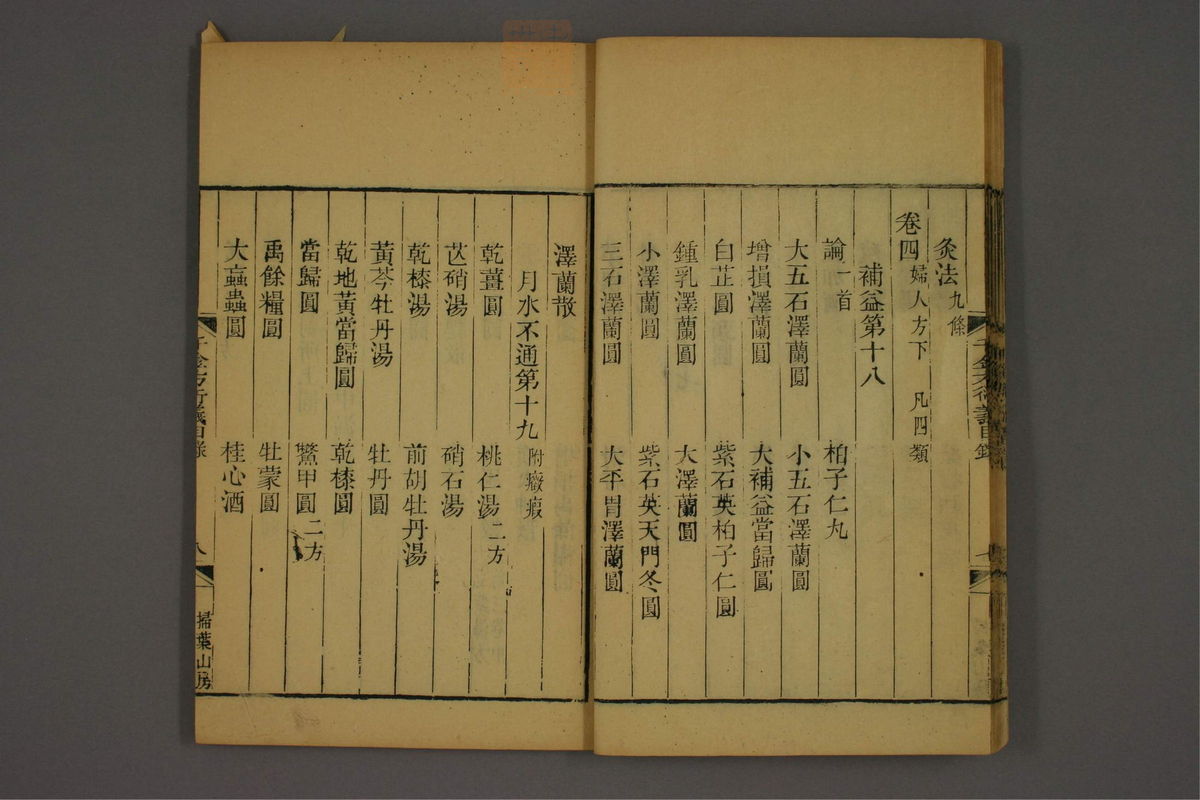 灸法九條
卷四婦人方下 凡四類
補益第十八
論一首 柏子仁丸
大五石澤蘭圓 小五石澤蘭圓
增損澤蘭圓 大補益當歸圓
白芷圓 紫石英柏子仁圓
鍾乳澤蘭圓 大澤蘭圓
小澤蘭圓 紫石英天門冬圓
三石澤蘭圓 大平胃澤蘭圓
千金方衍義目錄
澤蘭散
月水不通第十九附癥瘕
乾薑圓 桃仁湯二方
芒硝湯 硝石湯
乾漆湯 前胡牡丹湯
黃芩牡丹湯 牡丹圓
乾地黃當歸圓 乾漆圓
當歸圓 鱉甲圓二方
禹餘糧圓 牡蒙圓
大蝱蟲圓 桂心酒
千金方衍義目錄 八 掃葉山房